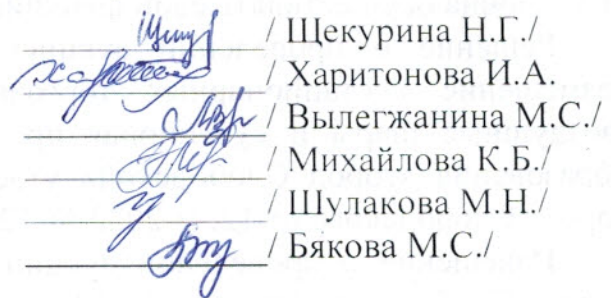 / Щекурина Н.Г./
/ Харитонова И.А.
/ Вылегжанина М.С./
/ Михайлова К.Б./
/ Шулакова М.Н./
/ Бякова М.С./